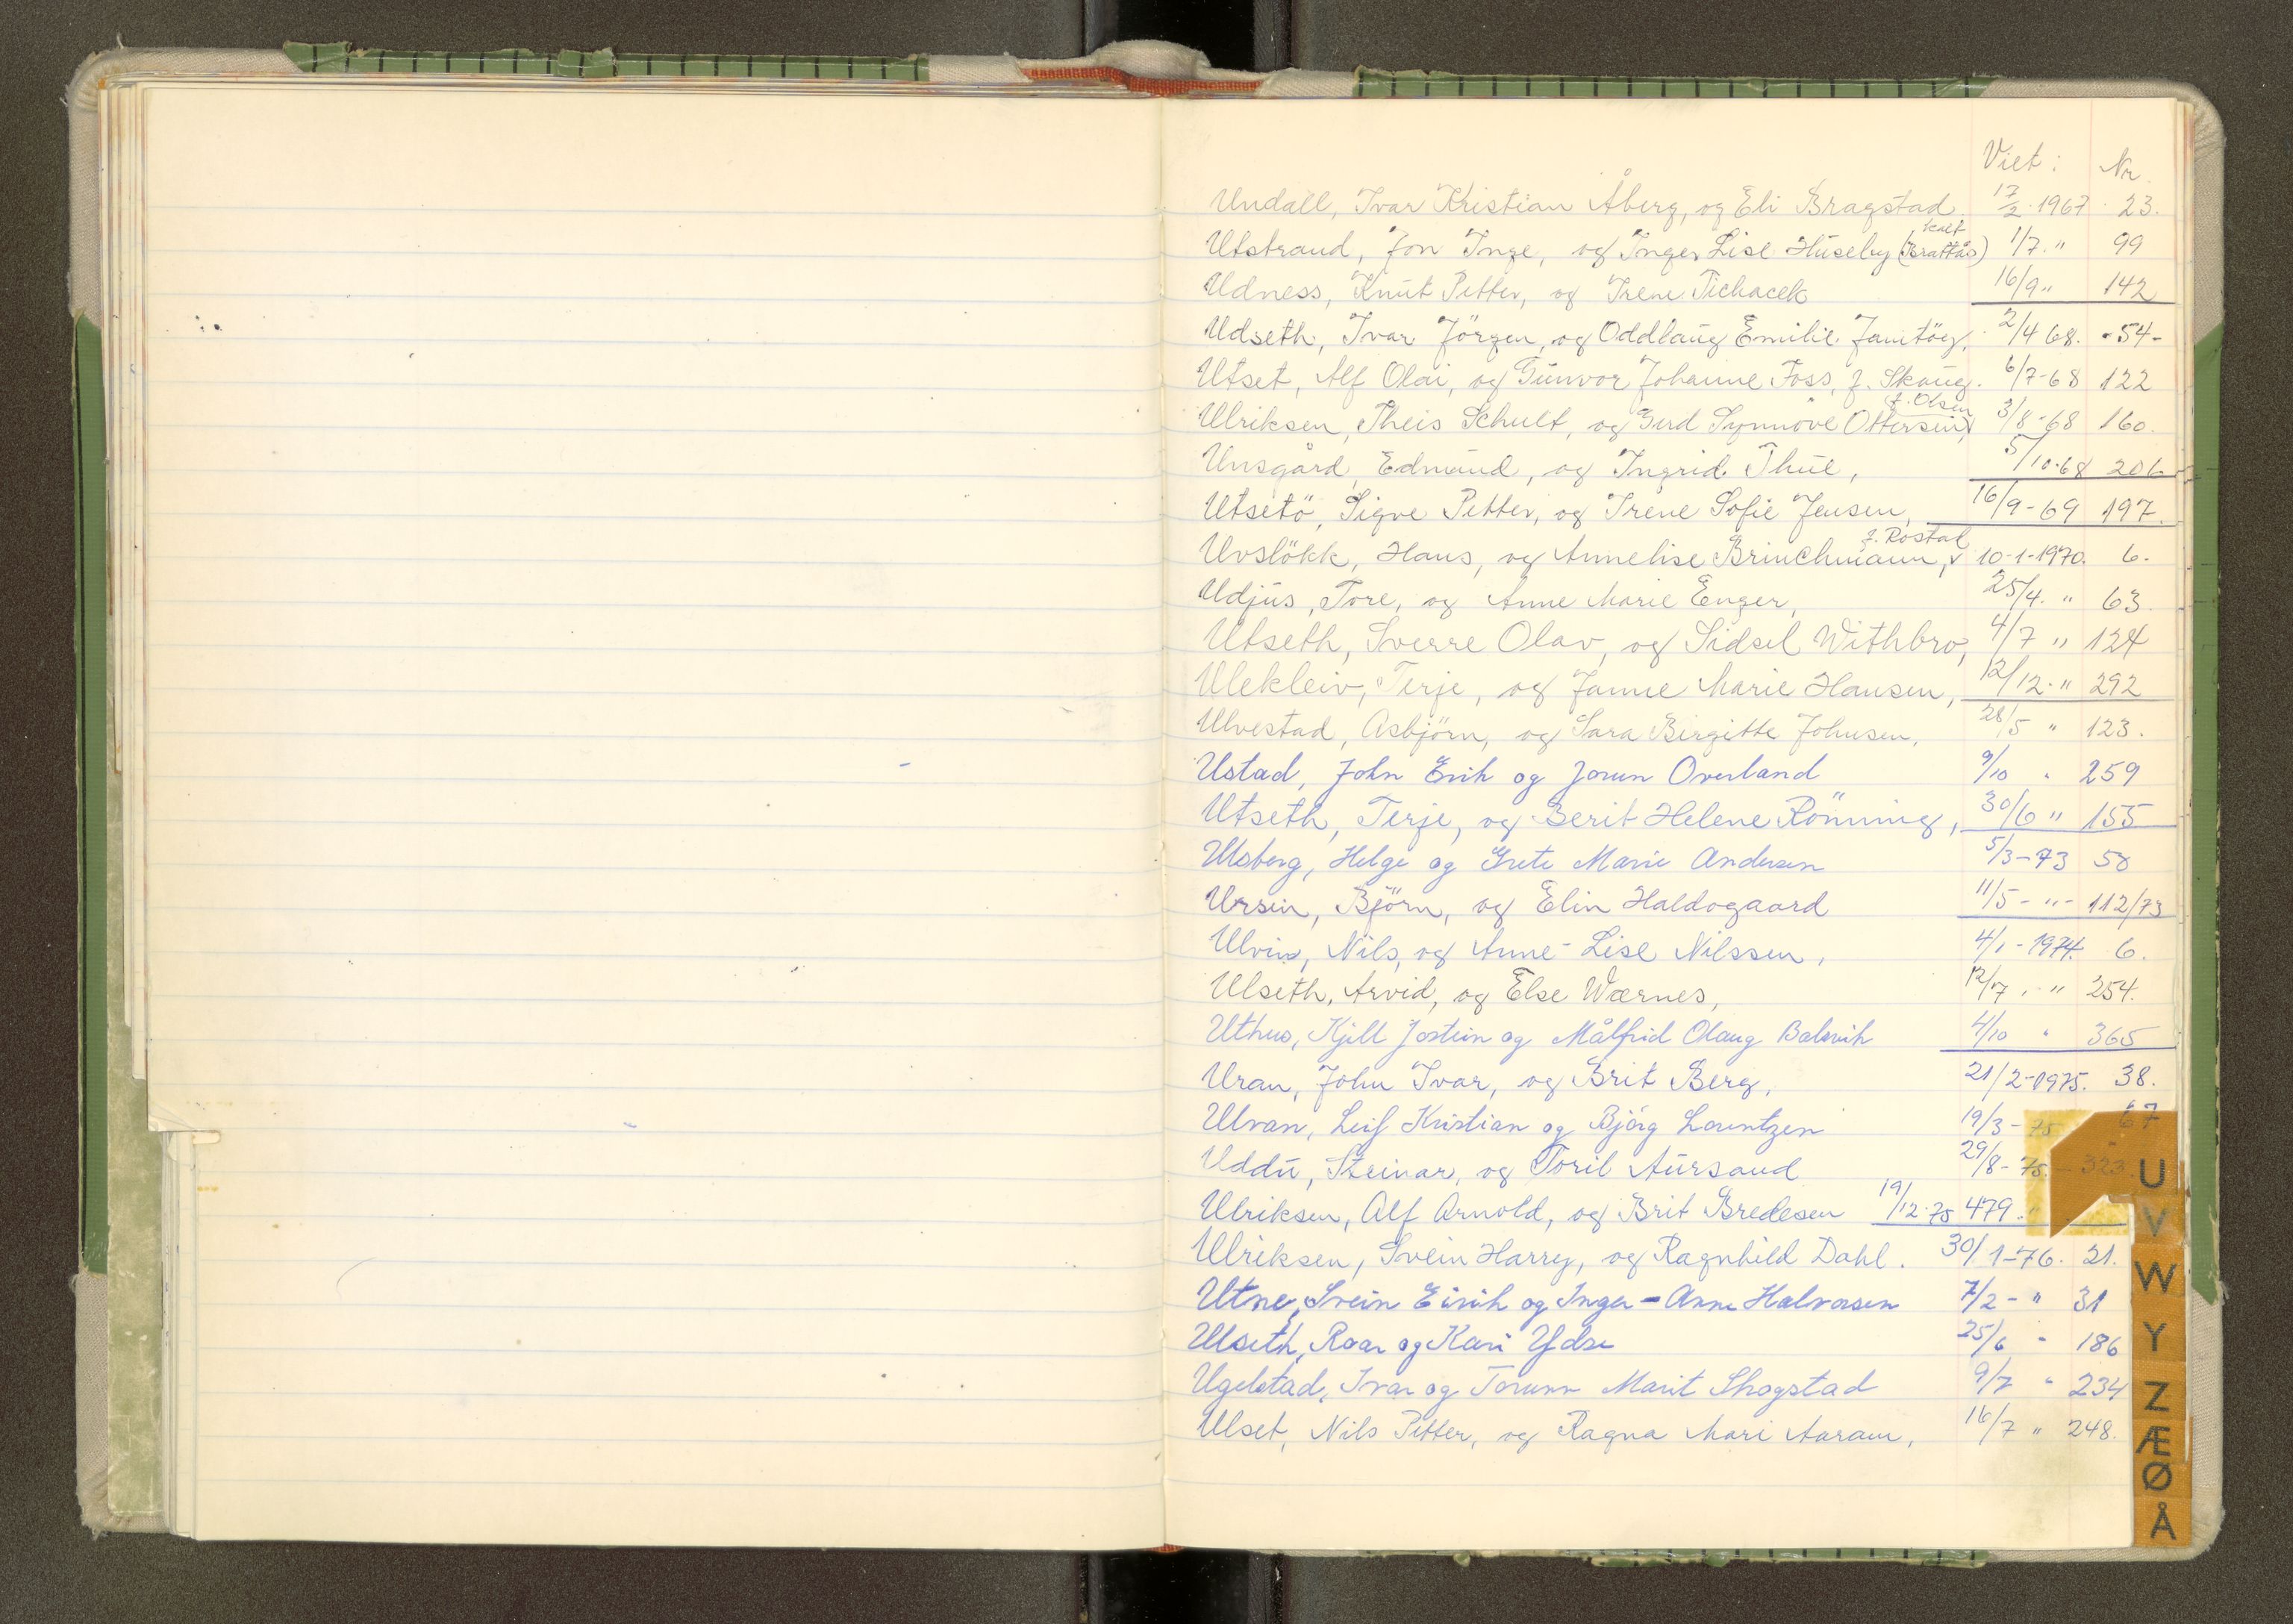 Viet: Nr.
Undall, Ivar Kristian Åberg, og Eli Bragstad 17/2.1967. 23.
kalt
Utstrand, Jon Inge, og Inger Lise Huseby (Brattås) 1/7. " 99
Udness, Knut Petter, og Irene Tichacek 16/9 " 142
Udseth, Ivar Jörgen, og Oddlaug Emilie Jamtöy. 2/4 68. -54-
Utset, Alf Olai, og Gunvor Johanne Foss, f. Skaug. 6/7-68 122
f. Olsen
Ulriksen, Theis Schult, og Gerd Synnöve Ottersen 3/8-68 160.
Unsgård, Edmund, og Ingrid Thue, 5/10-68 206
Utsetö, Sigve Petter, og Irene Sofie Jensen, 16/9-69 197.
f. Rostal
Uvslökk, Hans, og Annelise Brinchmann, 10-1-1970. 6.
Udjus, Tore, og Anne Marie Enger, 25/4. " 63.
Utseth, Sverre Olav, og Sidsel Withbro, 4/7 " 124
Ulekleiv, Terje, og Janne Marie Hansen, 12/12. " 292
Ulvestad, Asbjörn, og Sara Birgitte Johnsen, 28/5 " 123.
Ustad, John Erik og Jorun Overland 9/10 " 259
Utseth, Terje, og Berit Helene Rönning, 30/6 " 155
Ulsberg, Helge og Grete Marie Andersen 5/3-73 58
Ursin, Björn, og Elin Haldogaard 11/5 - " - 112/73
Ulvin, Nils, og Anne-Lise Nilssen, 4/1-1974. 6.
Ulseth, Arvid, og Else Wærnes, 12/7. " 254.
Uthus, Kjell Jostein og Målfrid Olaug Balsvik 4/10 " 365
Uran, John Ivar, og Brit Berg, 21/2-1975. 38.
Ulvan, Leif Kristian og Bjørg Lorentzen 19/3-75 67
Uddu, Steinar, og Toril Aursand 29/8-75. - 323.
Ulriksen, Alf Arnold, og Brit Bredesen 19/12-75 479.
Ulriksen, Svein Harry, og Ragnhild Dahl. 30/1-76. 21.
Utne, Svein Eirik og Inger-Anne Halvorsen 7/2 - " 31
Ulseth, Roar og Kari Ydse 25/6 " 186
Ugelstad, Ivar og Torunn Marit Skogstad 9/7 " 234
Ulset, Nils Petter, og Ragna Mari Aaram, 16/7 " 248.
U
V
W
Y
Z
Æ
Ø
Å